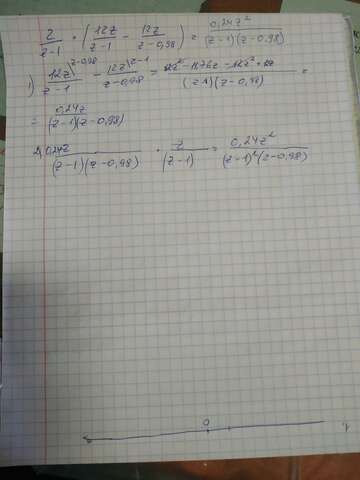 z/(z-1) · (12z/(z-1) - 12z/(z-0,98)) = 0,24z²/((z-1)(z-0,98))
1) 12z\z-0,98/(z-1) - 12z\z-1/(z-0,98) = (12z² - 11,76z - 12z² + 12z)/((z-1)(z-0,98)) =
= 0,24z/((z-1)(z-0,98))
2) 0,24z/((z-1)(z-0,98)) · z/(z-1) = 0,24z²/((z-1)²(z-0,98))
0